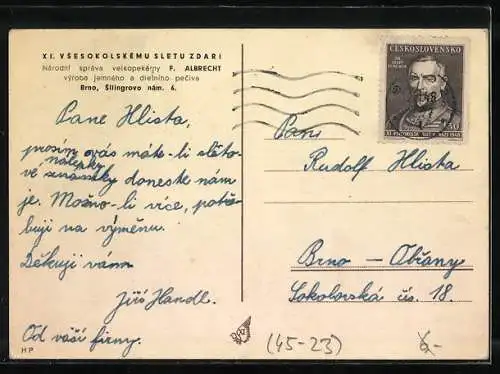 XI. VŠESOKOLSKÉMU SLETU ZDAR!
Národní správa velkopekárny F. ALBRECHT
výroba jemného a dietního pečiva
Brno, Šilingrovo nám. 6.
Pane Hlista,
prosím vás máte-li sleto-
nálepky
vé známky doneste nám
je. Možno-li více, potře-
buji na výměnu.
Děkuji vám
Jiří Handl.
Od vaší firmy.
HP
ČESKOSLOVENSKO
Pan
Rudolf Hlista
Brno – Obřany
Sokolovská čís. 18.
(45-23)